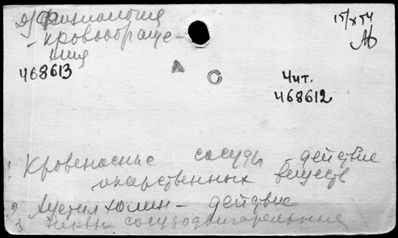 д/Физиология
- кровообраще-
ния
468613
15/X 54
А С
Чит.
468612
1 Кровеносные сосуды - действие
лекарственных веществ
2 Ацетилхолин - действие
3 Нервы сосудодвигательные